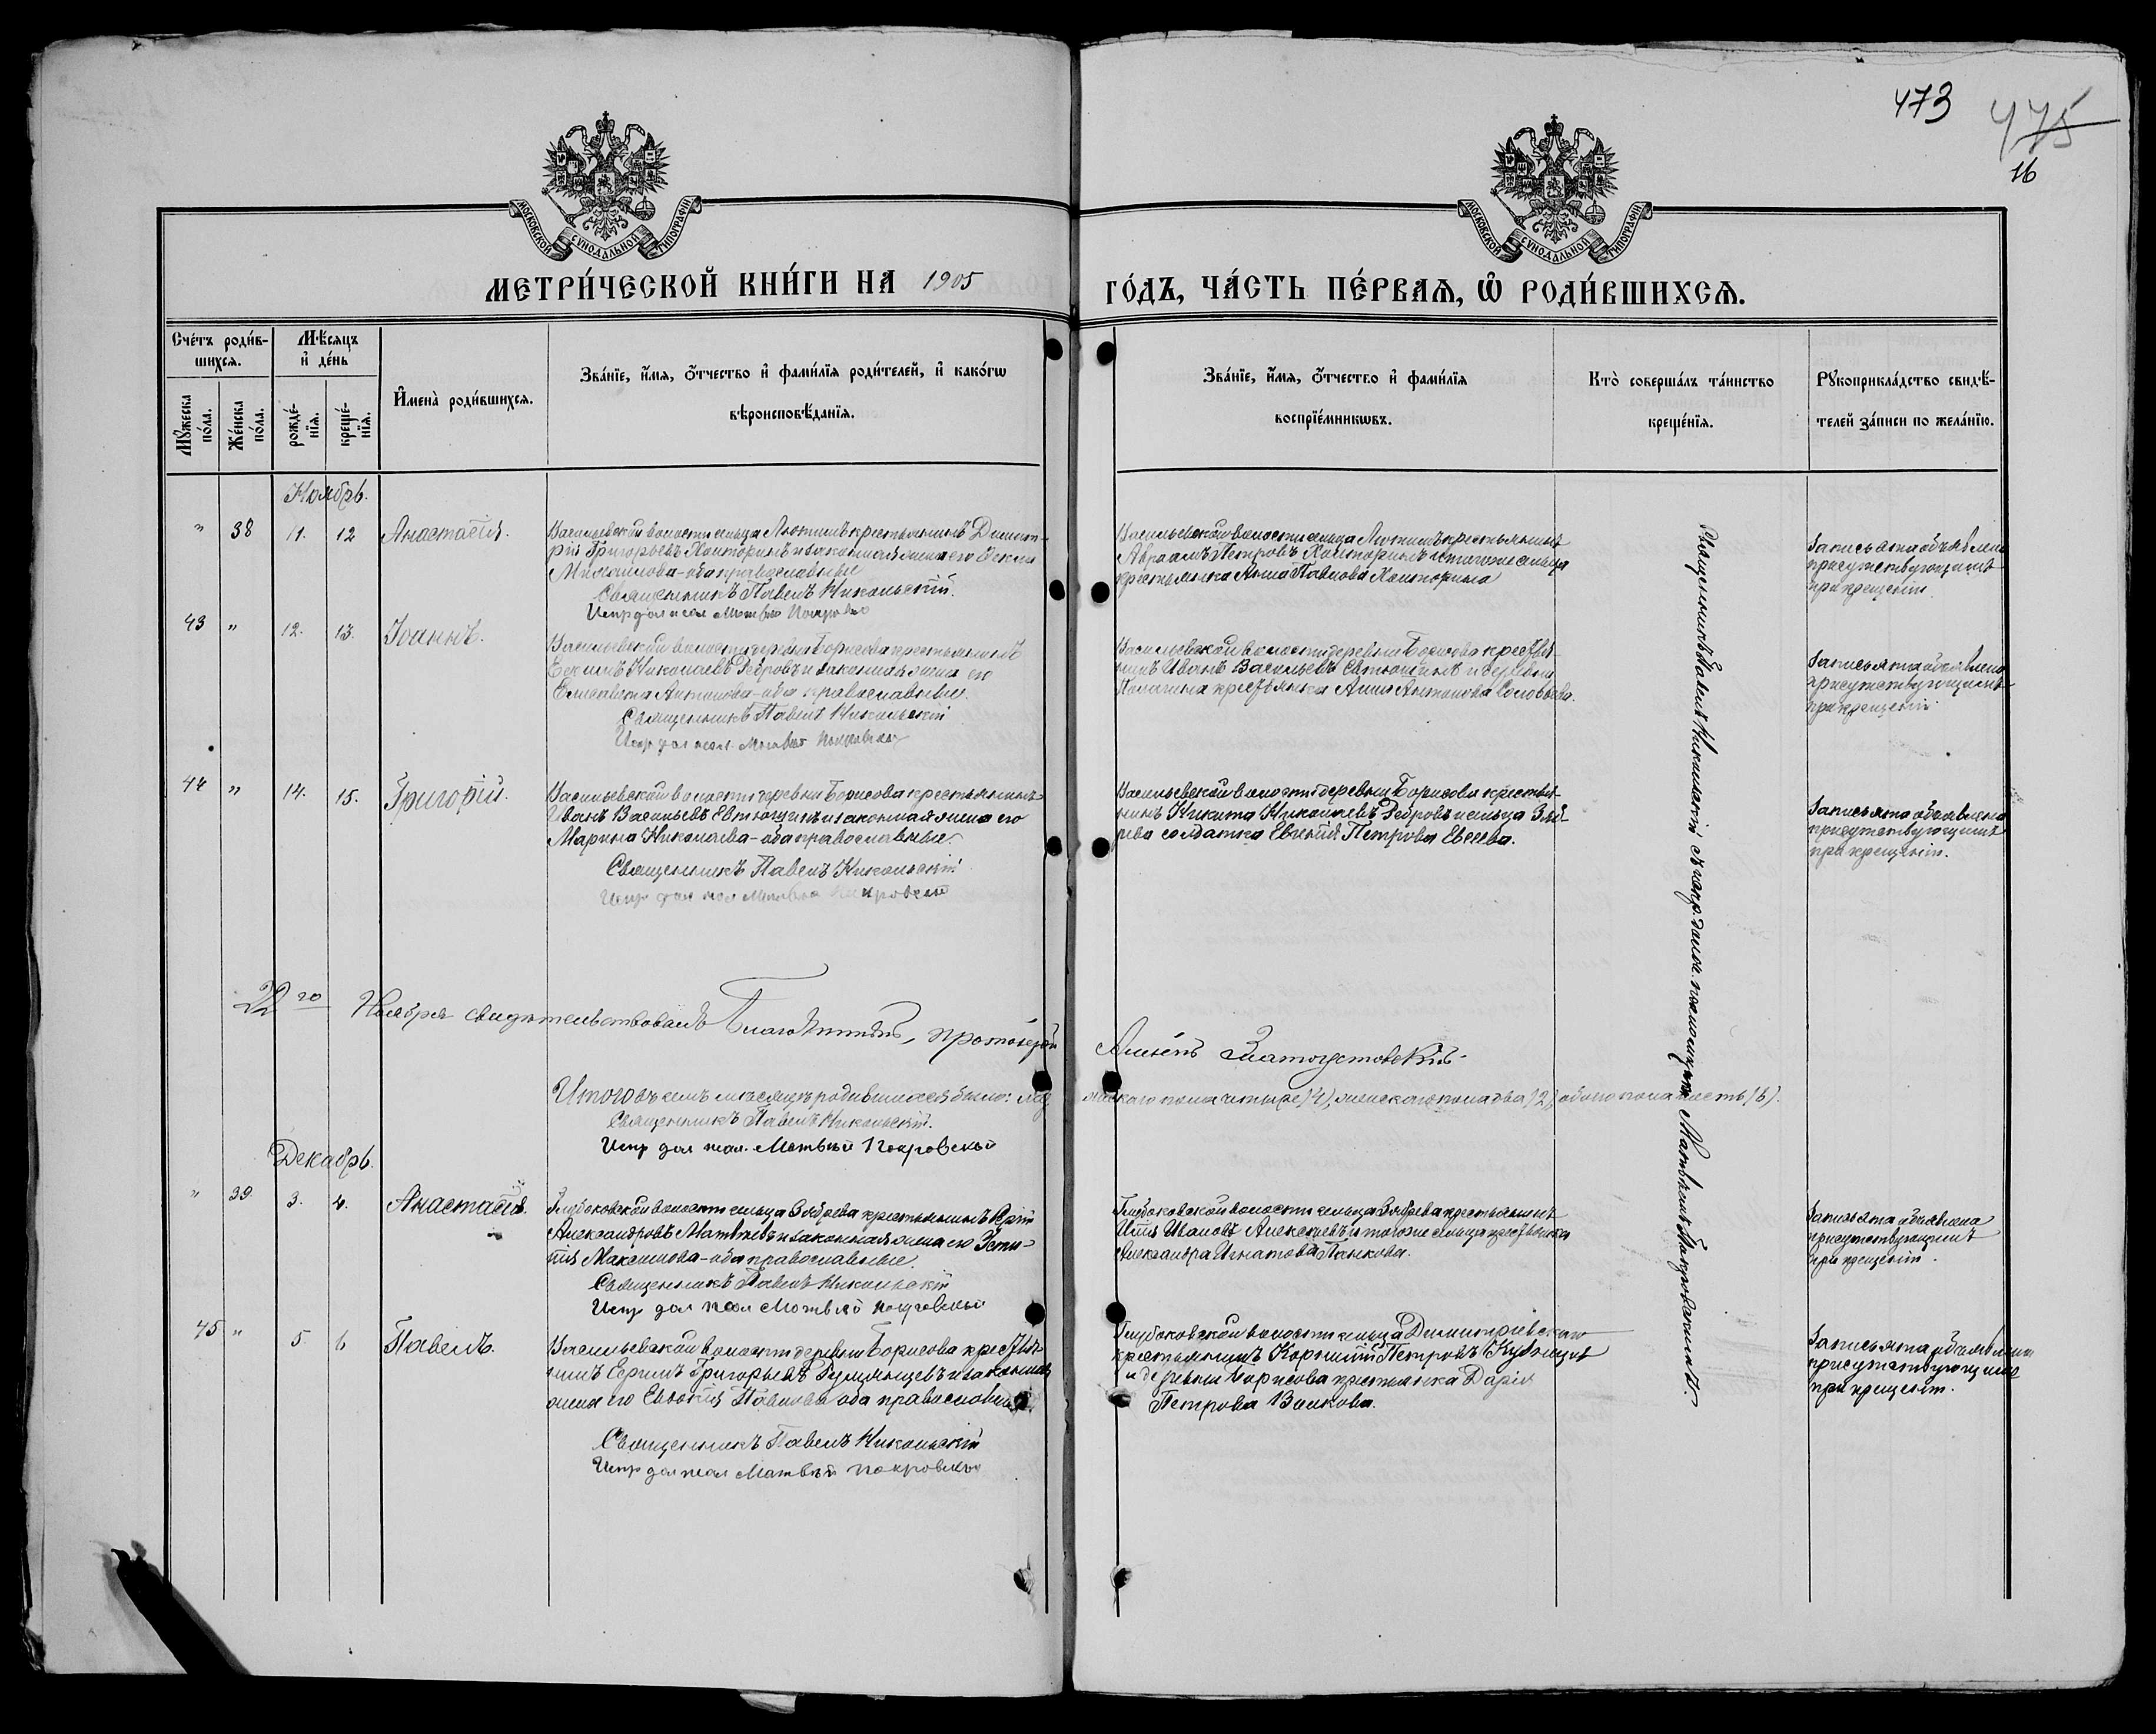 473
475
16
МОСКОВСКОЙ СѴНОДАЛЬНОЙ ТИПОГРАФІИ
МОСКОВСКОЙ СѴНОДАЛЬНОЙ ТИПОГРАФІИ
МЕТРИ́ЧЕСКОЙ КНИ́ГИ НА 1905
ГО́ДЪ, ЧА́СТЬ ПЕ́РВАѦ, Ѡ РОДИ́ВШИХСѦ.
Сче́тъ роди́в-
шихся.
Мꙋ́жеска
по́ла.
Же́нска
по́ла.
Мѣ́сяцъ
и҆ де́нь
рожде́-
нїя.
креще́-
нїя.
И҆мена̀ роди́вшихся.
Зва́нїе, и҆́мя, ѻ҆́тчество и҆ фами́лїя роди́телей, и҆ како́гѡ
вѣроисповѣ́данїя.
Зва́нїе, и҆́мя, ѻ҆́тчество и҆ фами́лїя
воспрїе́мникѡвъ.
Кто̀ соверша́лъ та́инство
креще́нїя.
Рꙋкоприкла́дство свидѣ́-
телей за́писи по жела́нїю.
Ноябрь.
" 38 11. 12 Анастасія.
Васильевской волости сельца Лютилъ крестьянинъ Димит-
рій Григорьевъ и законная жена его Ѳекла
Михайлова - оба православные
Священникъ Павелъ Никольскій.
Испр дол псал Матвѣй Покровскій
Васильевской волости сельца Лютилъ крестьянинъ
Авраамъ Петровъ и тогоже сельца
крестьянка Анна Павлова
Запись эта объявлена
присутствующимъ
при крещеніи.
43 " 12. 13. Іоаннъ.
Васильевской волости деревни Борисова крестьянинъ
Николаевъ Ребровъ и законная жена его
Елизавета Антипова - оба православные.
Священникъ Павелъ Никольскій
Испр дол псал. Матвѣй Покровскій
Васильевской волости деревни Борисова крестья-
нинъ Иванъ Васильевъ Евтюшинъ и деревни
крестьянка Анна Антонова Соловьева.
Запись эта объявлена
присутствующимъ
при крещеніи.
44 " 14. 15. Григорій.
Васильевской волости деревни Борисова крестьянинъ
Иванъ Васильевъ Евтюшинъ и законная жена его
Марина Николаева - оба православные.
Священникъ Павелъ Никольскій
Испр дол псал Матвѣй Покровскій
Васильевской волости деревни Борисова крестья-
нинъ Никита Николаевъ Ребровъ и сельца
солдатка Евгенія Петрова Евсеева.
Запись эта объявлена
присутствующимъ
при крещеніи.
22го Ноября свидѣтельствовалъ Благочинный, протоіерей
Алексѣй Златоустовскій.
Итого въ семъ мѣсяцѣ родившихся было: муж
скаго пола четыре (4), женскаго пола два (2), обоего пола шесть (6).
Священникъ Павелъ Никольскій.
Испр дол псал. Матвѣй Покровскій
Декабрь.
" 39. 3. 4. Анастасія.
Глубоковской волости сельца Зяброва крестьянинъ
Александровъ Матвѣевъ и законная жена его Усти-
нія Максимова - оба православные.
Священникъ Павелъ Никольскій
Испр дол псал Матвѣй Покровскій
Глубоковской волости сельца Зяброва крестьянинъ
Илія Ивановъ Алексѣевъ и тогоже сельца крестьянка
Александра Игнатова Панкова.
Запись эта объявлена
присутствующимъ
при крещеніи.
45 " 5. 6 Павелъ.
Васильевской волости деревни Борисова крестья-
нинъ Григорьевъ Румянцевъ и законная
жена его Евдокія Павлова оба православные
Священникъ Павелъ Никольскій
Испр дол псал Матвѣй Покровскій
Глубоковской волости сельца Димитріевскаго
крестьянинъ Корнилій Петровъ
и деревни Борисова крестьянка Дарія
Петрова Волкова.
Запись эта объявлена
присутствующимъ
при крещеніи.
Священникъ Павелъ Никольскій съ испр. долж. псаломщика Матвѣемъ Покровскимъ.